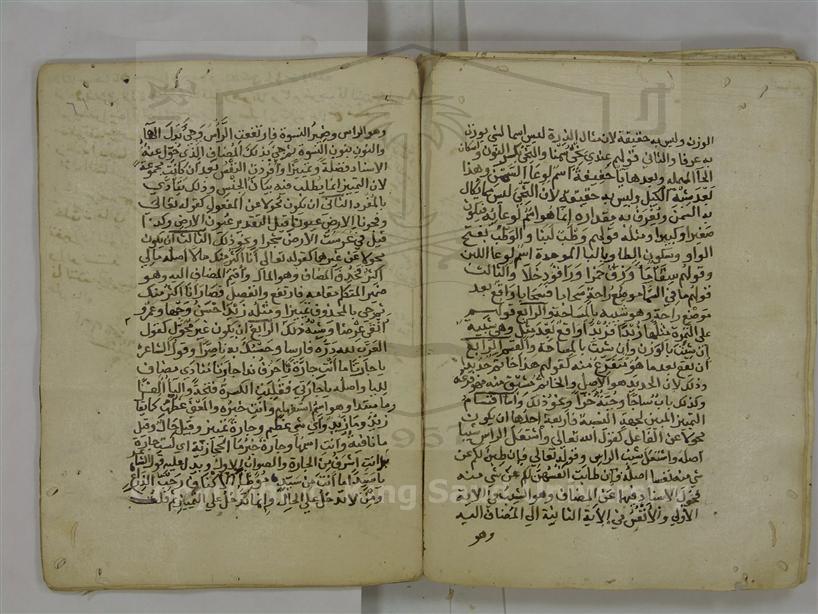 الوزن وليس به حقيقة لان مثقال الذرة ليس اسما لشي يوزن
به عرفا والثاني قولهم عندي نحي سمنا والنحي بكسر النون واسكان
الحا المهملة وبعدها يا خفيفة اسم لوعا السمن وهذا
يعد شبه الكيل وليس به حقيقة لان النحي ليس مما يكال
به السمن ويعرف به مقداره انما هو اسم لوعائه فيكون
صغيرا وكبيرا ومثله قولهم وطب لبنا والوطب بفتح
الواو وسكون الطا وباليا الموحدة اسم لوعا اللبن
وقولهم سقا ما وزق خمرا وراقود خلا والثالث
قولهم ما في السما موضع راحة سحابا فسحابا واقع بعد
موضع راحة وهو شبيه بالمساحة والرابع قولهم
على التمرة مثلها زبدا فزبدا واقع بعد مثل وهي شبيه
ان شئت بالوزن وان شئت بالمساحة والقسم الرابع
ان يقع بعد ما هو متفرع منه كقولهم هذا خاتم حديدا
وذلك لان الحديد هو الاصل والخاتم مشتق منه فهو فرعه
وكذلك باب ساجا وجبة خزا ونحو ذلك واما اقسام
التمييز المبين لجهة النسبة فاربعة احدها ان يكون
محولا عن الفاعل كقول الله تعالى واشتعل الراس شيبا
اصله واشتعل شيب الراس وقوله تعالى فان طبن لكم عن
شي منه نفسا اصله فان طابت انفسهن لكم عن شي منه
فحول الاسناد فيهما عن المضاف وهو الشيب في الاية
الاولى والانفس في الاية الثانية الى المضاف اليه
وهو
وهو الراس وضمير النسوة فارتفعت الراس وجي بدل الها
والنون بنون النسوة ثم جي بذلك المضاف الذي حول عنه
الاسناد فضلة وتمييزا وافردت النفس بعد ان كانت مجموعة
لان التمييز انما يطلب فيه بيان الجنس وذلك يتادى
بالمفرد الثاني ان يكون محولا عن المفعول كقوله تعالى
وفجرنا الارض عيونا قيل التقدير عيون الارض وكذا
قيل في غرست الارض شجرا ونحو ذلك الثالث ان يكون
محولا عن غيرهما كقوله تعالى انا اكثر منك مالا اصله مالي
اكثر فحذف المضاف وهو المال واقيم المضاف اليه وهو
ضمير المتكلم مقامه فارتفع وانفصل فصار انا اكثر منك
ثم جي بالمحذوف تمييزا ومثله زيد احسن وجها وعمرو
انقى عرضا وشبه ذلك الرابع ان يكون غير محول كقول
العرب لله دره فارسا وحسبك به ناصرا وقول الشاعر
يا جارتا ما انت جاره يا حرف ندا جارتا منادى مضاف
لليا واصله يا جارتي فقلبت الكسرة فتحة واليا الفا
وما مبتدا وهو اسم استفهام وانت خبره والمعنى عظمت كما يقال
زيد وما زيد اي شي عظيم وجارة تمييز وقيل حال وقيل
ما نافية وانت اسمها وجارة خبر ما الحجازية اي لست جارة
بل انت اشرف من الجارة والصواب الاول ويدل عليه قول الشاعر
يا سيدا ما انت من سيد موطا الاكناف رحب الذراع
ومن لا تدخل على الحال وانما تدخل على التمييز